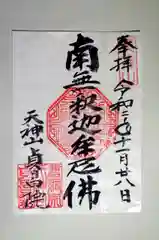 奉拝 令和三年十一月廿八日
南無釈迦牟尼佛
天神山 貞昌院